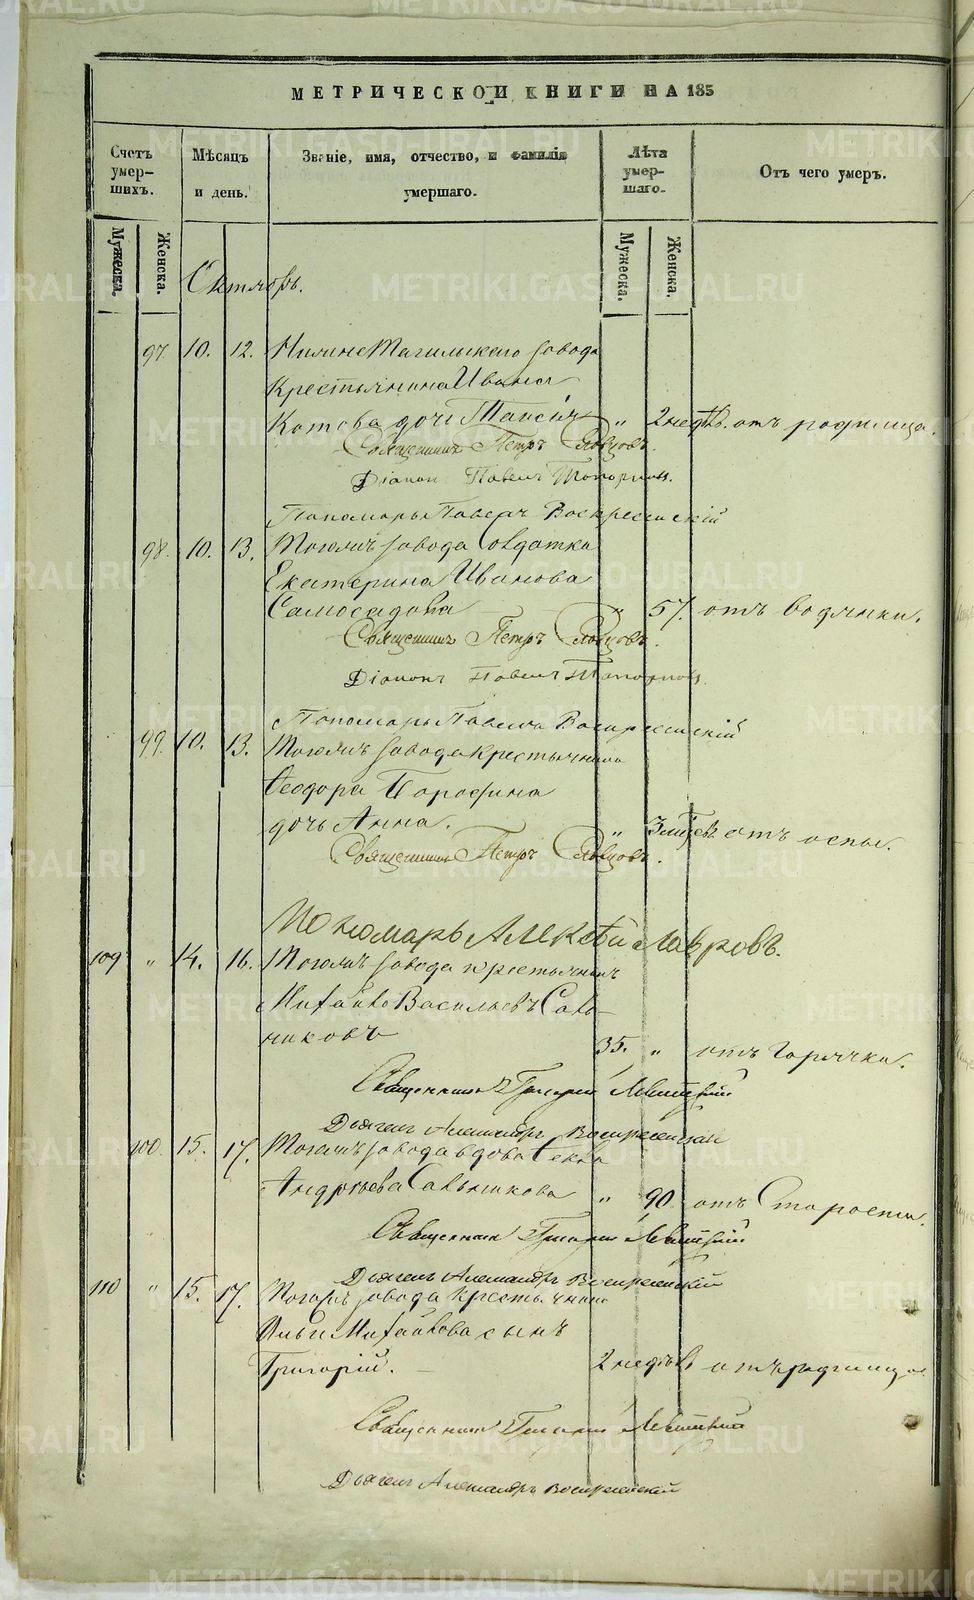 МЕТРИЧЕСКОЙ КНИГИ НА 185
Счетъ умер-шихъ.
Мѣсяцъ и день.
Званіе, имя, отчество, и фамилія умершаго.
Лѣта умер-шаго.
Отъ чего умеръ.
Мужеска. Женска. Мужеска. Женска.
Октябрь.
97. 10. 12. Нижне Тагильскаго завода
Крестьянина Ивана
Котова дочь Таисія „ 2 недѣ. отъ родимца.
Священникъ Петръ Словцовъ.
Діаконъ Павелъ Топорковъ.
Пономарь Павелъ Воскресенскій
98. 10. 13. Тогожъ завода Солдатка
Екатерина Иванова
Самосадова „ 57. отъ водянки.
Священникъ Петръ Словцовъ.
Діаконъ Павелъ Топорковъ.
Пономарь Павелъ Воскресенскій
99. 10. 13. Тогожъ завода крестьянина
Ѳеодора
дочь Анна. „ 3 мѣсяц. отъ оспы.
Священникъ Петръ Словцовъ.
Пономарь Алексѣй Лавровъ.
109 „ 14. 16. Тогожъ завода крестьянинъ
Михайло Васильевъ Саль-
никовъ 35. „ отъ горячки.
Священникъ Григорій Левитскій
Дьячекъ Александръ Воскресенскій
100. 15. 17. Тогожъ завода вдова Ѳекла
Андреева Сальникова „ 90. отъ Старости.
Священникъ Григорій Левитскій
Дьячекъ Александръ Воскресенскій
110 „ 15. 17. Тогожъ завода Крестьянина
Ильи Михайлова сынъ
Григорій. 2 недѣль отъ родимца.
Священникъ Григорій Левитскій
Дьячекъ Александръ Воскресенскій
METRIKI.GASO-URAL.RU